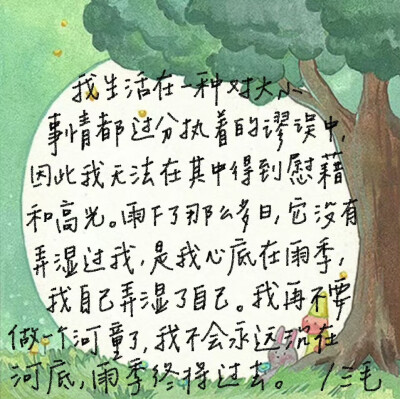 我生活在一种对大小
事情都过分执着的谬误中,
因此我无法在其中得到慰藉
和高光。雨下了那么多日,它没有
弄湿过我,是我心底在雨季,
我自己弄湿了自己。我再不要
做一个河童了,我不会永远沉在
河底,雨季终得过去。 /三毛